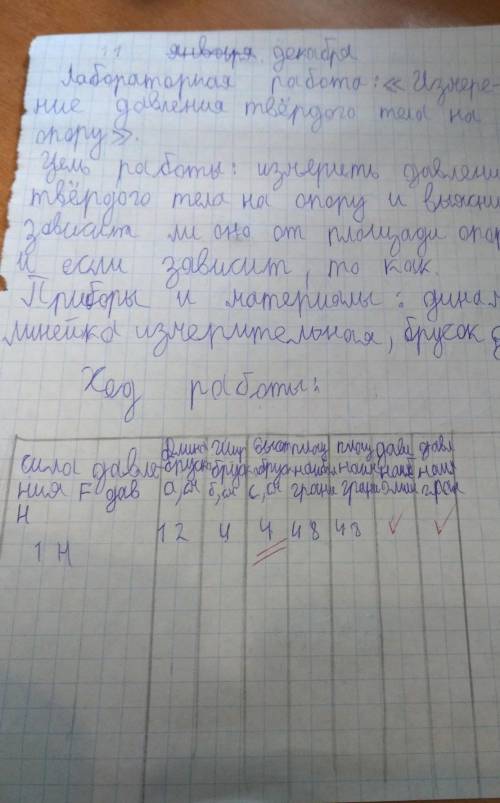 11 января декабря
Лабораторная работа: «Измере-
ние давления твёрдого тела на
опору».
Цель работы: измерить давлени
твёрдого тела на опору и выясни
зависит ли оно от площади опор
и если зависит, то как.
Приборы и материалы: динам
линейка измерительная, брусок д
Ход работы:
сила давле
ния F дав
Н
Длина бруска а, см
Шир бруск б, см
Высот бруск с, см
площ наибол грани
площ наим грани
давл наиб
давл наим гран
1 Н 12 4 4 48 48